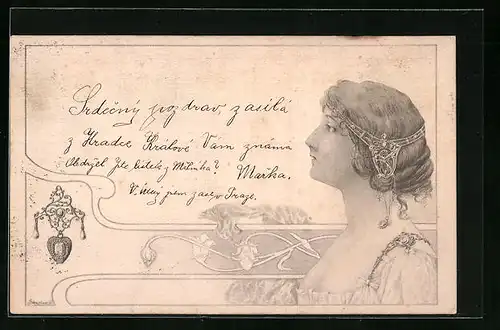 Srdečný pozdrav, zasílá
z Hradce Králové Vám známá
Obdržel jste lístek z Mělníka?
Mařka.
V úterý jsem zase v Praze.